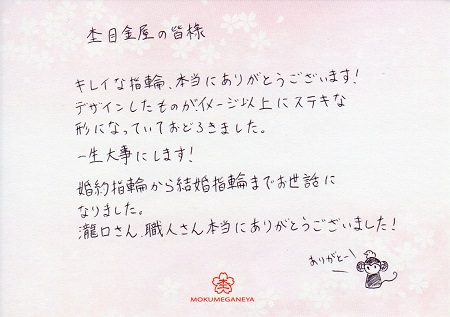 杢目金屋の皆様
キレイな指輪、本当にありがとうございます!
デザインしたものがイメージ以上にステキな
形になっていておどろきました。
一生大事にします!
婚約指輪から結婚指輪までお世話に
なりました。
瀧口さん、職人さん本当にありがとうございました!
ありがとー
MOKUMEGANEYA